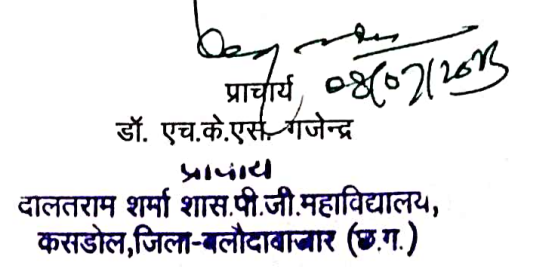 प्राचार्य 08/07/2025
डॉ. एच.के.एस. गजेन्द्र
प्राचार्य
दालतराम शर्मा शास.पी.जी.महाविद्यालय,
कसडोल,जिला-बलौदाबाजार (छ.ग.)